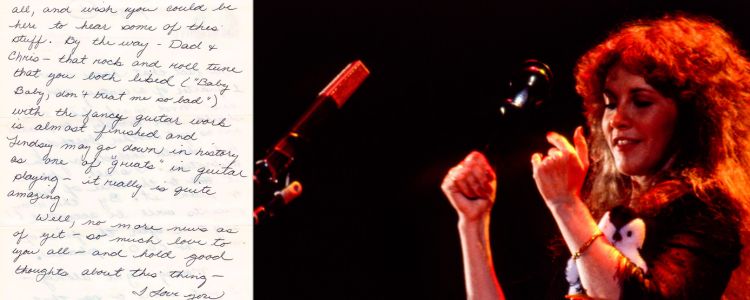 all, and wish you could be
here to hear some of this
stuff. By the way - Dad &
Chris - that rock and roll tune
that you both liked ("Baby
Baby, don't treat me so bad")
with the fancy guitar work
is almost finished and
Lindsey may go down in history
as one of "greats" in guitar
playing - it really is quite
amazing.
Well, no more news as
of yet - so much love to
you all - and hold good
thoughts about this thing -
I Love you